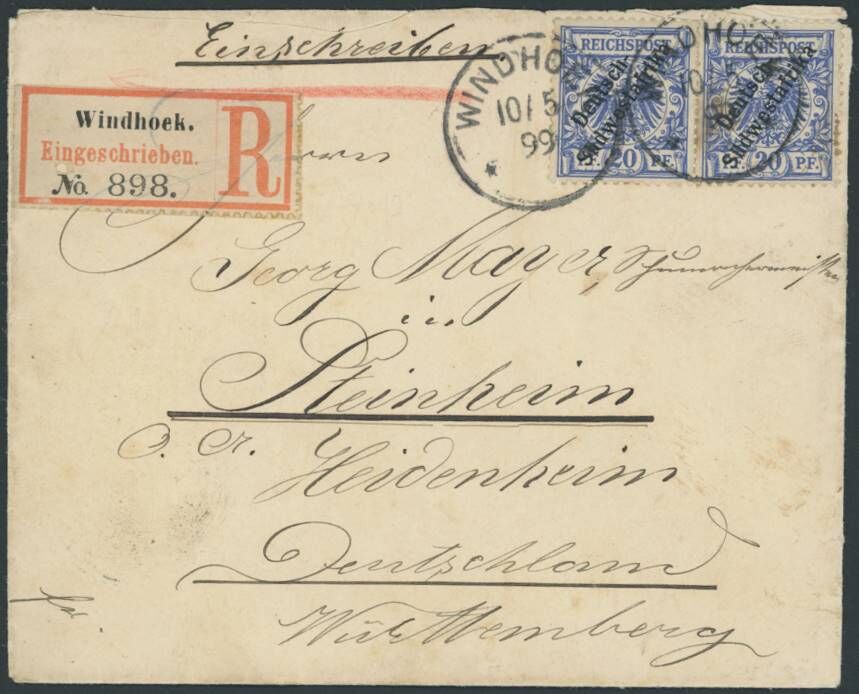 Einschreiben.
Windhoek.
Eingeschrieben.
No. 898.
R
WINDHOEK
10/5
99
REICHSPOST
Deutsch-
Südwestafrika
PF. 20 PF.
WINDHOEK
10/5
REICHSPOST
Deutsch-
Südwestafrika
PF. 20 PF.
Herrn
Georg Mayer, Schumachermeister
in
Steinheim
O. A. Heidenheim
Deutschland
Württemberg